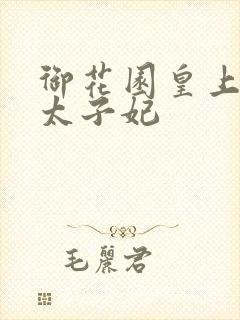 御花园皇上
太子妃
毛丽君